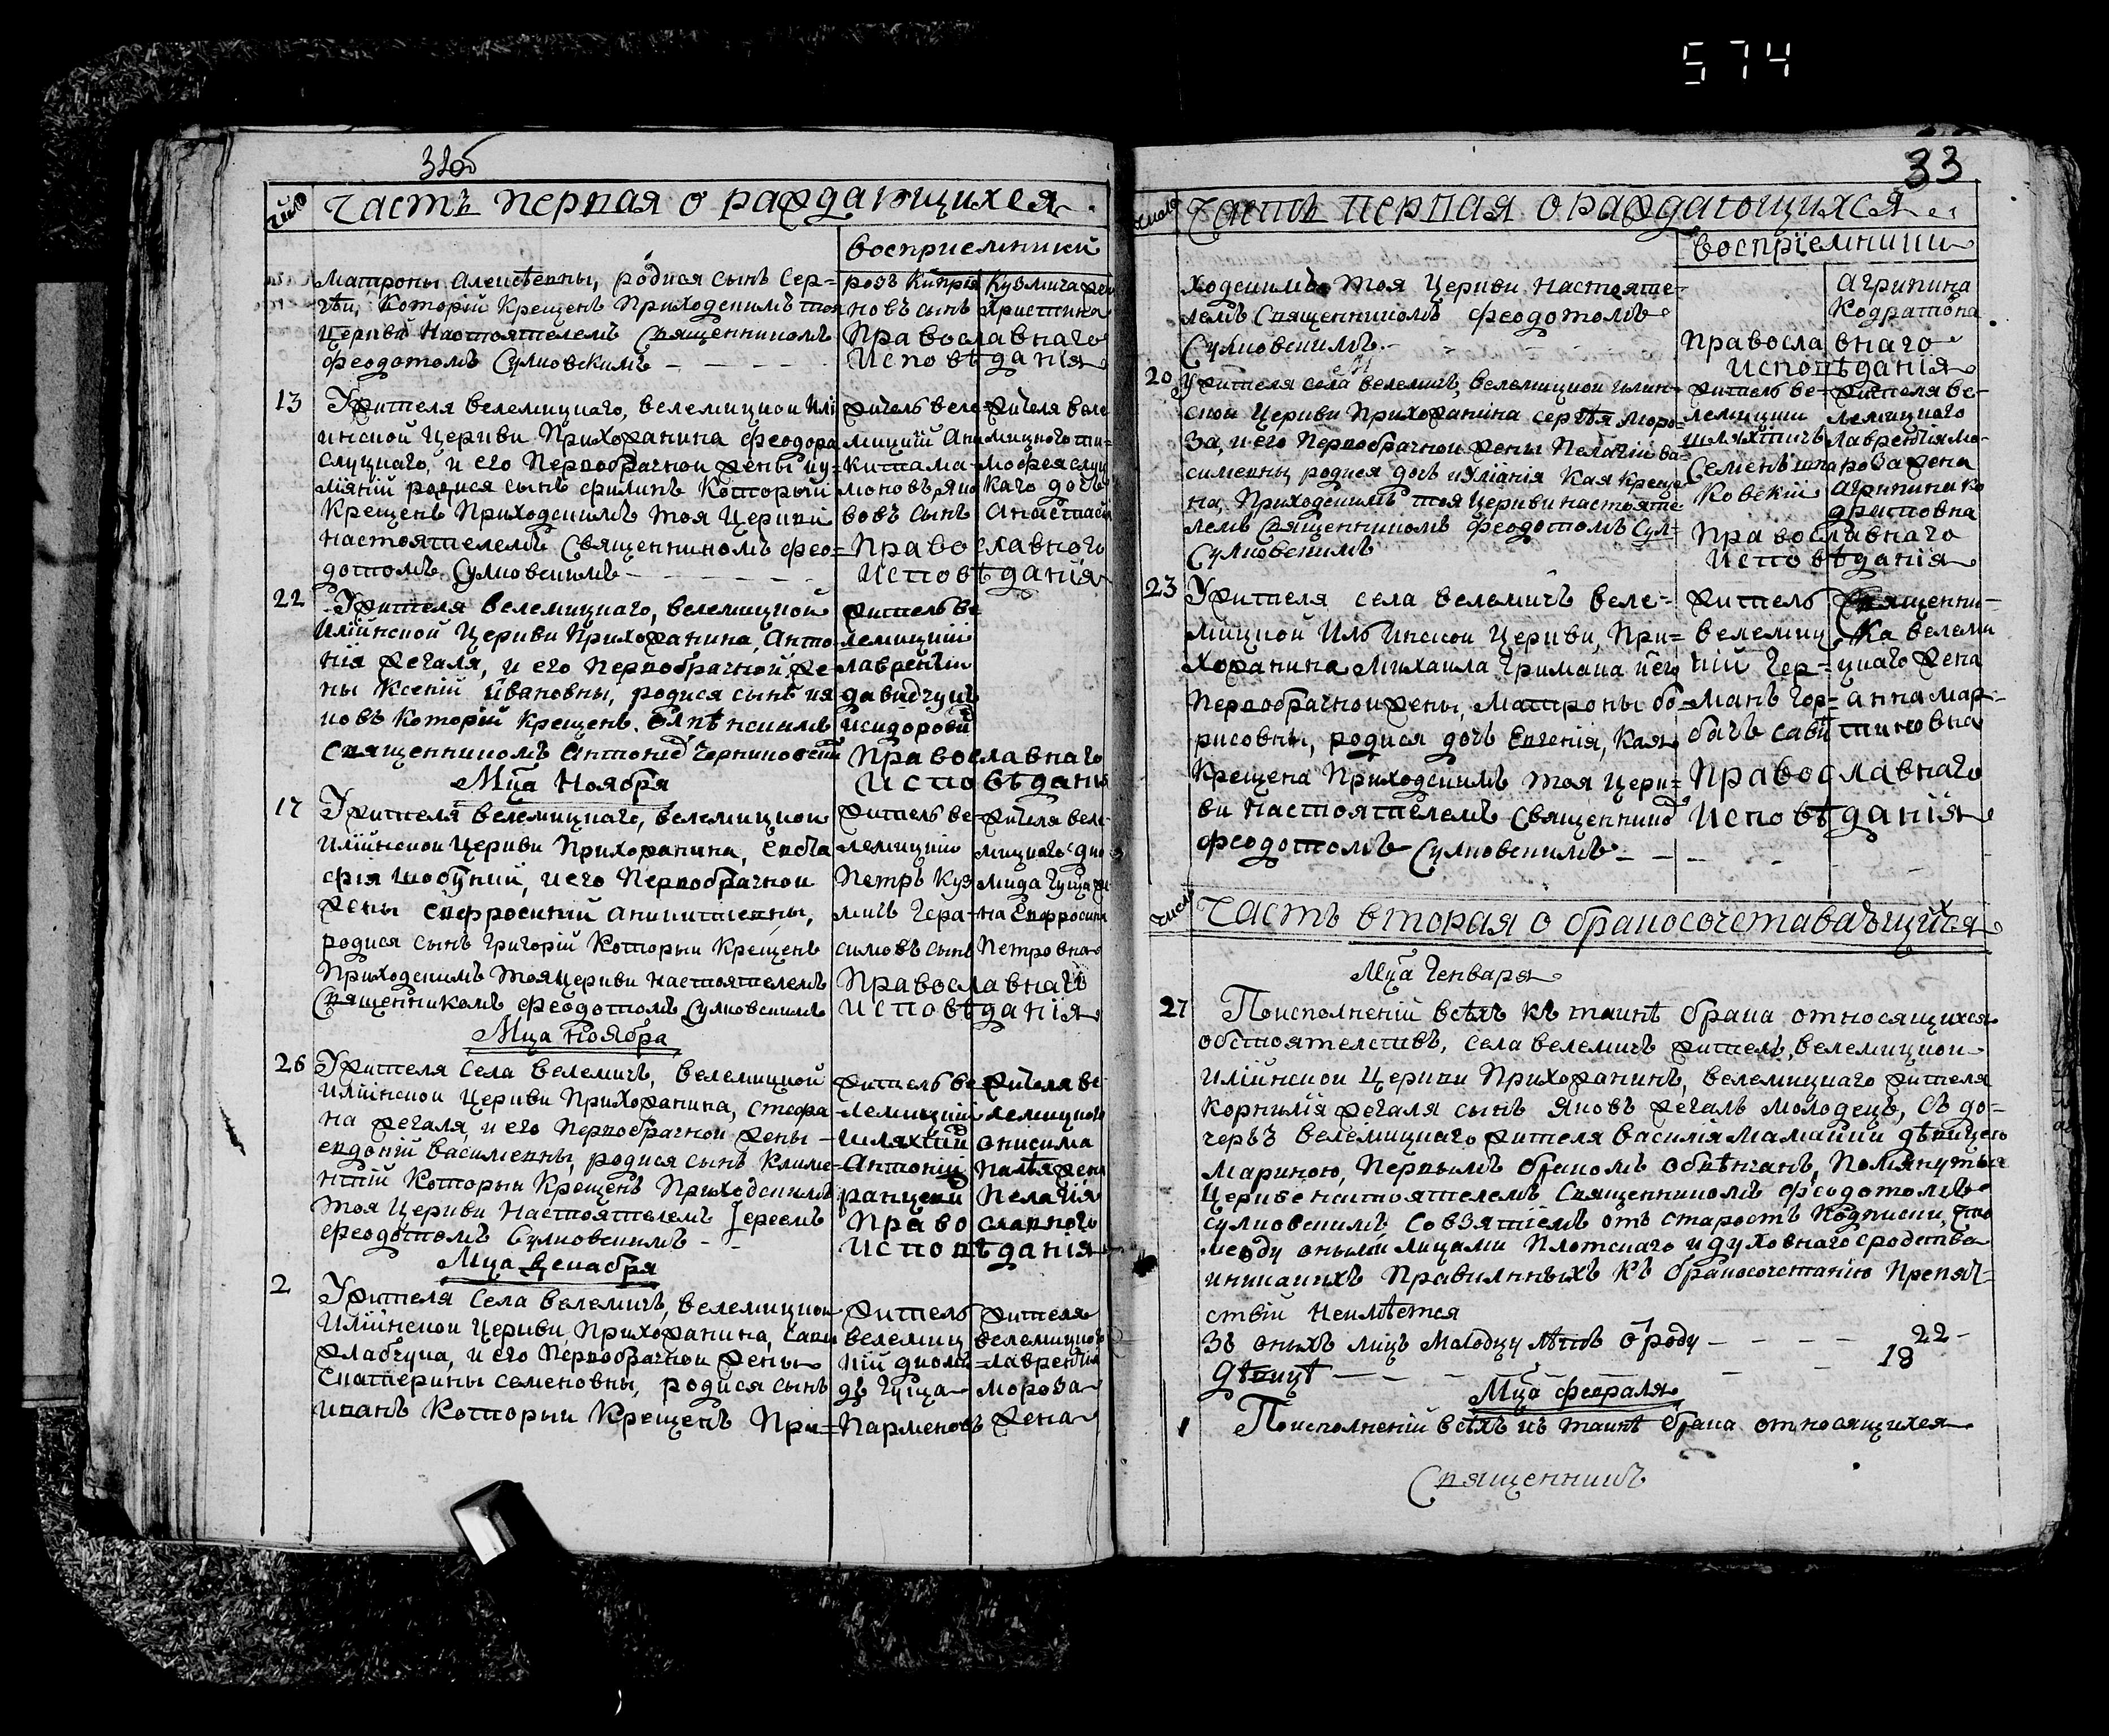 574
32об
число
Часть первая о раждающихся
восприемники
Матроны Алексѣевны, родися сынъ Сер=
гѣй, которій крещенъ приходскимъ тоя
церкви настоятелемъ священникомъ
Феодотомъ Сулковскимъ
новъ сынъ
Христина
Православнаго
Исповѣданія
13
У жителя велемицкаго, велемицкои Илі
инской церкви прихожанина Феодора
слуцкаго, и его первобрачной жены иу=
ліяніи родися сынъ Филипъ которыи
крещенъ приходскимъ тоя церкви
настоятелемъ священникомъ Фео=
дотомъ Сулковскимъ
житель веле=
мицкій
вовъ сынъ
жителя веле
мицкого ти=
мофея слуц
каго дочь
Анастасія
Православного
Исповѣданія
22
У жителя велемицкаго, велемицкой
Иліинской церкви прихожанина, Анто=
нія жегаля, и его первобрачной же=
ны Ксеніи Ивановны, родися сынъ Ия
ковъ которій крещенъ
священникомъ Антоніемъ
житель ве
лемицкій
Лаврентіи
давидчукъ
исидоровъ
Православнаго
Исповѣданія
Мца Ноября
17
У жителя велемицкаго, велемицкои
Иліинской церкви прихожанина, Евста
фія
и его первобрачной
жены Евфросиніи Аникитевны,
родися сынъ Григорій которыи крещенъ
приходскимъ тоя церкви настоятелемъ
священникомъ Феодотомъ Сулковскимъ
житель ве=
лемицкій
Петръ Куз
мичъ Гера=
симовъ сынъ
жителя веле
мицкаго Дио
мида Гуща же
на Евфросинія
Петровна
Православнаго
Исповѣданія
Мца Ноября
26
У жителя села велемичъ, велемицкой
Иліинской церкви прихожанина, Стефа
на жегаля, и его первобрачной жены
Евдокіи Василевны, родися сынъ Климе=
нтій которыи крещенъ приходскимъ
тоя церкви настоятелемъ Іереемъ
Феодотомъ Сулковскимъ
житель ве
лемицкій
шляхтич
Антоній
жителя ве
лемицкого
Онисима
жена
Пелагія
Православного
Исповѣданія
Мца Декабря
2
У жителя села велемичъ, велемицкои
Иліинской церкви прихожанина, Савы
жлабчука, и его первобрачной жены
Екатерины Семеновны, родися сынъ
Иванъ которыи крещенъ при=
житель
велемиц
кій Диоми
дъ Гуща
Парменовъ
жителя
велемицкого
Лаврентія
Мороза
жена
33
число
Часть первая о раждающихся
восприемники
ходскимъ тоя церкви настояте=
лемъ священникомъ Феодотомъ
Сулковскимъ
Агрипина
Кодратовна
Православнаго
Исповѣданія
20
У жителя села велемичъ, велемицкои Илин=
ской церкви прихожанина Сергѣя Моро=
за, и его первобрачной жены Пелагіи Ва=
силевны родися дочь иуліанія кая креще
на, приходскимъ тоя церкви настояте
лемъ священникомъ Феодотомъ Сул=
Сулковскимъ
житель ве=
лемицкии
шляхтичъ
Семенъ
жителя ве=
лемицкого
Лаврентія Мо=
роза жена
Агрипина Ко
дратовна
Православнаго
Исповѣданія
23
У жителя села велемичъ веле=
мицкой Ильинской церкви, при=
хожанина Михаила Гримача и его
первобрачной жены, Матроны Бо=
рисовны, родися дочь Евгенія, кая
крещена приходскимъ тоя церк=
ви настоятелемъ священником
Феодотомъ Сулковскимъ
житель
велемиц
кій Гер=
манъ Гор=
бачъ
Священни=
ка велеми
цкаго жена
Анна Мар=
тиновна
Православнаго
Исповѣданія
число
Часть вторая о бракосочетавающихся
Мца Генваря
27
Поисполненіи всѣхъ къ таинѣ брака относящихся
обстоятелствъ, села велемичъ житель, велемицкои
Иліинской церкви прихожанинъ, велемицкаго жителя
Корнилія жегаля сынъ Яковъ жегаль молодецъ, съ до=
черъ велемицкаго жителя Василія Мамайки дѣвицею
Мариною, первымъ бракомъ обвѣнчанъ, помянутыя
церкве настоятелемъ священникомъ Феодотомъ
Сулковскимъ со взятіемъ отъ старостъ подписки, что
между оными лицами плотскаго и духовнаго сродства
иникакихъ правилныхъ къ бракосочетанію препят=
ствій неимѣется
Зъ оныхъ лицъ молодцу лѣтъ о роду — — — — 22
дѣвицѣ — — — — 18
Мца Февраля
1
Поисполненіи всѣхъ къ таинѣ брака относящихся
Священникъ